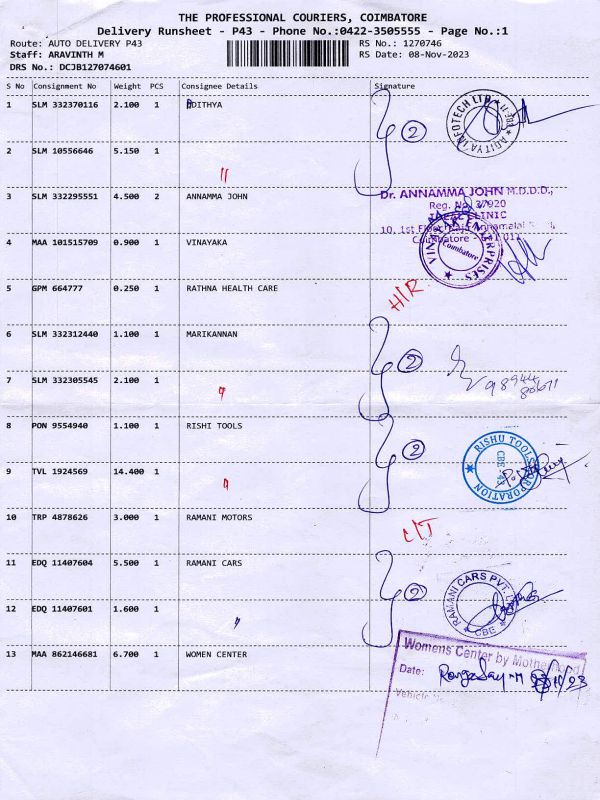 THE PROFESSIONAL COURIERS, COIMBATORE
Delivery Runsheet - P43 - Phone No.:0422-3505555 - Page No.:1
Route: AUTO DELIVERY P43 RS No.: 1270746
Staff: ARAVINTH M RS Date: 08-Nov-2023
DRS No.: DCJB127074601
S No Consignment No Weight PCS Consignee Details Signature
1 SLM 332370116 2.100 1 ADITHYA
ADITYA INFOTECH LTD CBE-11
2
2 SLM 10556646 5.150 1 "
3 SLM 332295551 4.500 2 ANNAMMA JOHN
Dr. ANNAMMA JOHN M.D.D.D.,
Reg. No. 37920
CLINIC
10, 1st Floor, Annamalai
Coimbatore - 641 012
4 MAA 101515709 0.900 1 VINAYAKA
VINAYAK ENTERPRISES Coimbatore
5 GPM 664777 0.250 1 RATHNA HEALTH CARE H/R
6 SLM 332312440 1.100 1 MARIKANNAN
2
98944
80671
7 SLM 332305545 2.100 1 "
8 PON 9554940 1.100 1 RISHI TOOLS
2
RISHU TOOLS CORPORATION CBE-43
9 TVL 1924569 14.400 1 "
10 TRP 4878626 3.000 1 RAMANI MOTORS C/T
11 EDQ 11407604 5.500 1 RAMANI CARS
2
RAMANI CARS PVT. LTD CBE
12 EDQ 11407601 1.600 1 "
13 MAA 862146681 6.700 1 WOMEN CENTER
Womens Center by Motherhood
Date:
Vehicle